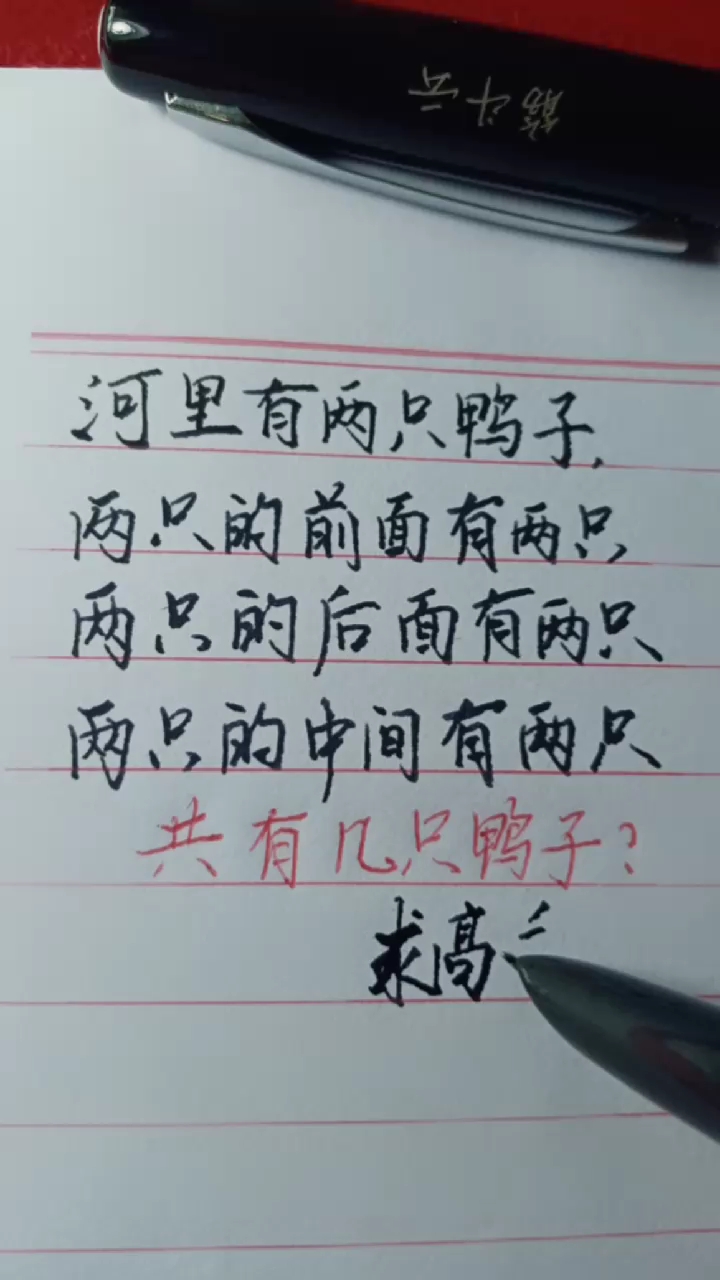 筋斗云
河里有两只鸭子,
两只的前面有两只
两只的后面有两只
两只的中间有两只
共有几只鸭子?
求高